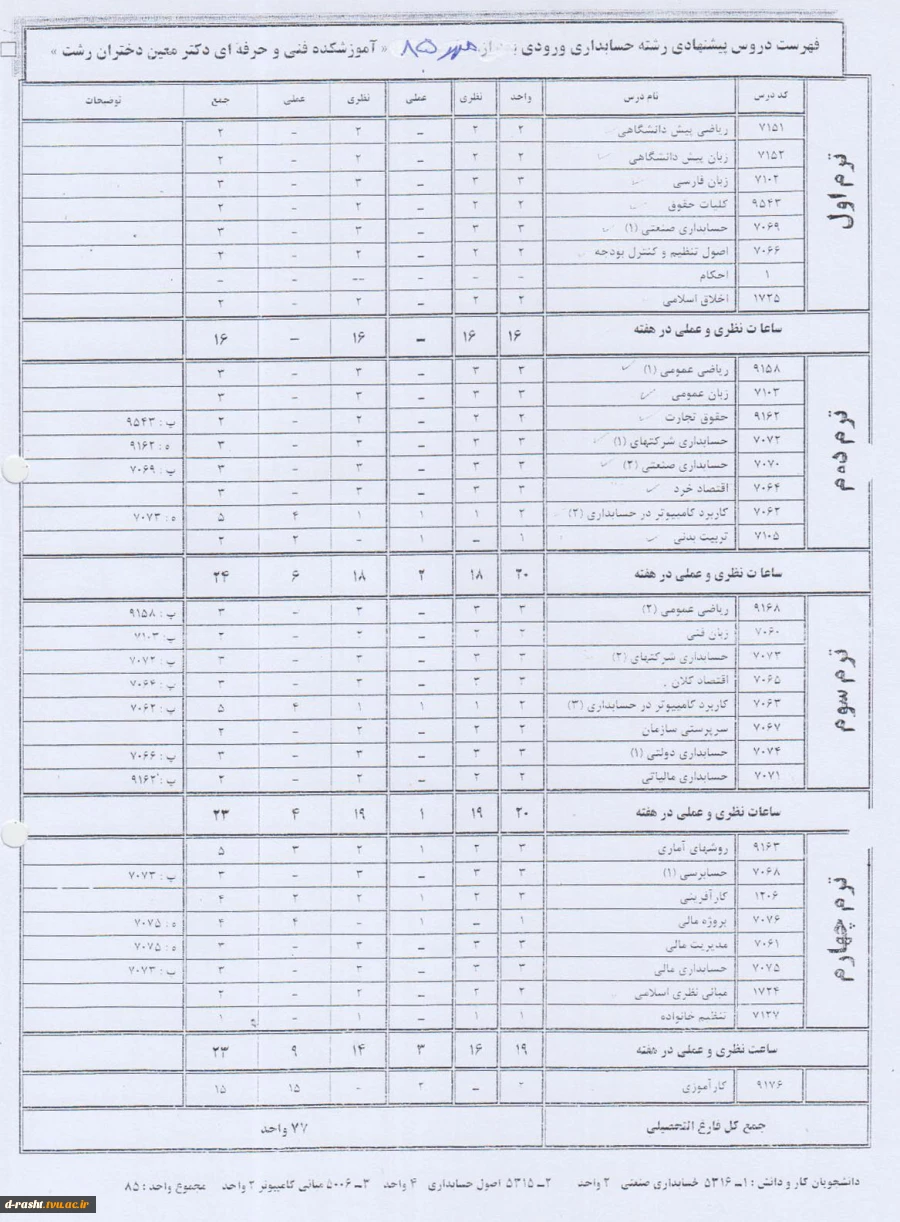 فهرست دروس پیشنهادی رشته حسابداری ورودی مهر ۸۵ « آموزشکده فنی و حرفه ای دکتر معین دختران رشت »
کد درس نام درس واحد نظری عملی نظری عملی جمع توضیحات
ترم اول
۷۱۵۱ ریاضی پیش دانشگاهی ۲ ۲ ــ ۲ - ۲
۷۱۵۲ زبان پیش دانشگاهی ۲ ۲ ــ ۲ - ۲
۷۱۰۲ زبان فارسی ۳ ۳ ــ ۳ - ۳
۹۵۴۳ کلیات حقوق ۲ ۲ ــ ۲ - ۲
۷۰۶۹ حسابداری صنعتی (۱) ۳ ۳ ــ ۳ - ۳
۷۰۶۶ اصول تنظیم و کنترل بودجه ۲ ۲ ــ ۲ - ۲
۱ احکام - - ــ -- - -
۱۷۳۵ اخلاق اسلامی ۲ ۲ ــ ۲ - ۲
ساعات نظری و عملی در هفته ۱۶ ۱۶ ــ ۱۶ - ۱۶
ترم دوم
۹۱۵۸ ریاضی عمومی (۱) ۳ ۳ ــ ۳ - ۳
۷۱۰۳ زبان عمومی ۳ ۳ ــ ۳ - ۳
۹۱۶۲ حقوق تجارت ۲ ۲ ــ ۲ - ۲ پ : ۹۵۴۳
۷۰۷۲ حسابداری شرکتهای (۱) ۳ ۳ ــ ۳ - ۳ ه : ۹۱۶۲
۷۰۷۰ حسابداری صنعتی (۲) ۳ ۳ ــ ۳ - ۳ پ : ۷۰۶۹
۷۰۶۴ اقتصاد خرد ۳ ۳ ــ ۳ - ۳
۷۰۶۲ کاربرد کامپیوتر در حسابداری (۲) ۲ ۱ ۱ ۱ ۴ ۵ ه : ۷۰۷۳
۷۱۰۵ تربیت بدنی ۱ ــ ۱ - ۲ ۲
ساعات نظری و عملی در هفته ۲۰ ۱۸ ۲ ۱۸ ۶ ۲۴
ترم سوم
۹۱۶۸ ریاضی عمومی (۲) ۳ ۳ ــ ۳ - ۳ پ : ۹۱۵۸
۷۰۶۰ زبان فنی ۲ ۲ ــ ۲ - ۲ پ : ۷۱۰۳
۷۰۷۳ حسابداری شرکتهای (۲) ۳ ۳ ــ ۳ - ۳ پ : ۷۰۷۲
۷۰۶۵ اقتصاد کلان ۳ ۳ ــ ۳ - ۳ پ : ۷۰۶۴
۷۰۶۳ کاربرد کامپیوتر در حسابداری (۳) ۲ ۱ ۱ ۱ ۴ ۵ پ : ۷۰۶۲
۷۰۶۷ سرپرستی سازمان ۲ ۲ ــ ۲ - ۲
۷۰۷۴ حسابداری دولتی (۱) ۳ ۳ ــ ۳ - ۳ پ : ۷۰۶۶
۷۰۷۱ حسابداری مالیاتی ۲ ۲ ــ ۲ - ۲ پ : ۹۱۶۲
ساعات نظری و عملی در هفته ۲۰ ۱۹ ۱ ۱۹ ۴ ۲۳
ترم چهارم
۹۱۶۳ روشهای آماری ۳ ۲ ۱ ۲ ۳ ۵
۷۰۶۸ حسابرسی (۱) ۳ ۳ ــ ۳ - ۳ پ : ۷۰۷۳
۱۲۰۶ کارآفرینی ۳ ۲ ۱ ۲ ۲ ۴
۷۰۷۶ پروژه مالی ۱ ــ ۱ - ۴ ۴ ه : ۷۰۷۵
۷۰۶۱ مدیریت مالی ۳ ۳ ــ ۳ - ۳ ه : ۷۰۷۵
۷۰۷۵ حسابداری مالی ۳ ۳ ــ ۳ - ۳ پ : ۷۰۷۳
۱۷۲۴ مبانی نظری اسلامی ۲ ۲ ــ ۲ - ۲
۷۱۲۷ تنظیم خانواده ۱ ۱ ــ ۱ - ۱
ساعت نظری و عملی در هفته ۱۹ ۱۶ ۳ ۱۴ ۹ ۲۳
۹۱۷۶ کارآموزی ۲ ــ ۲ - ۱۵ ۱۵
جمع کل فارغ التحصیلی ۷۷ واحد
دانشجویان کار و دانش : ۱ــ ۵۳۱۶ حسابداری صنعتی ۲ واحد ۲ــ ۵۳۱۵ اصول حسابداری ۴ واحد ۳ــ ۵۰۰۶ مبانی کامپیوتر ۲ واحد مجموع واحد : ۸۵
d-rasht.tvu.ac.ir